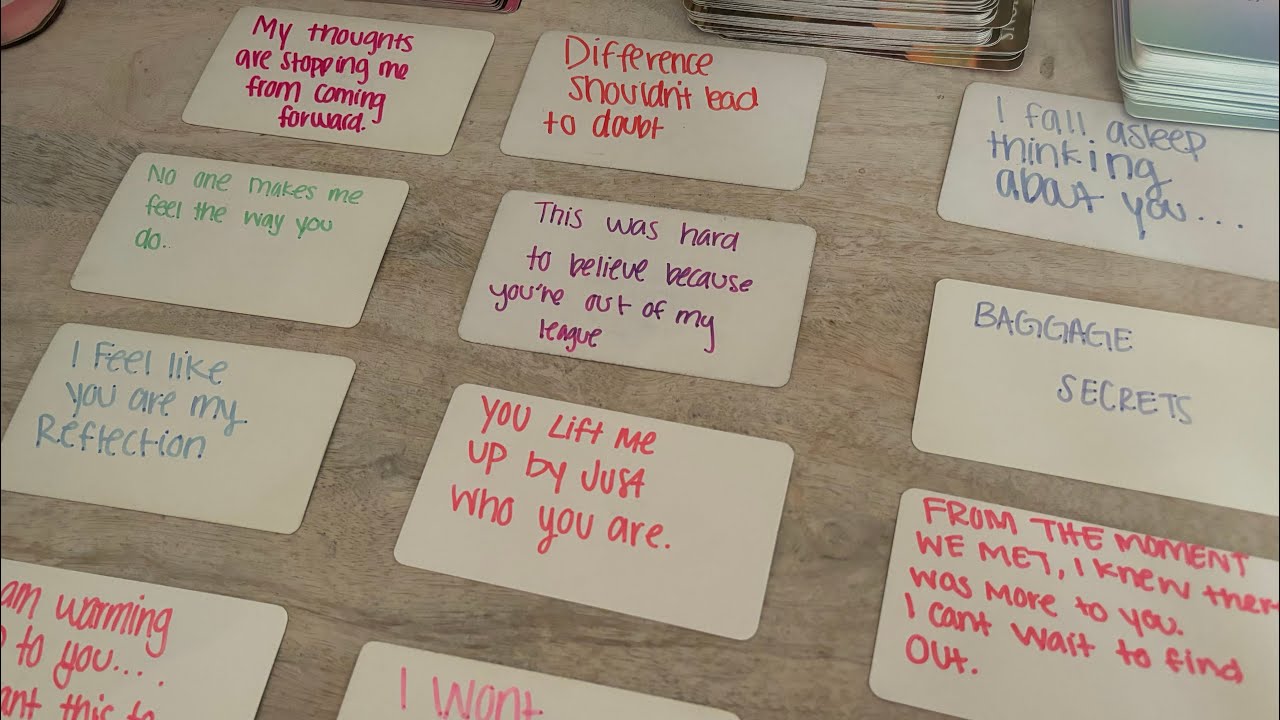 My thoughts
are stopping me
from coming
forward.
Difference
shouldn't lead
to doubt
I fall asleep
thinking
about you...
No one makes me
feel the way you
do..
This was hard
to believe because
you're out of my
league
BAGGAGE
SECRETS
I Feel like
you are my
Reflection
YOU Lift Me
up by Just
who you are.
FROM THE MOMENT
WE MET, I knew ther
was more to you.
I cant wait to find
Out.
am warming
to you....
this to
I Want